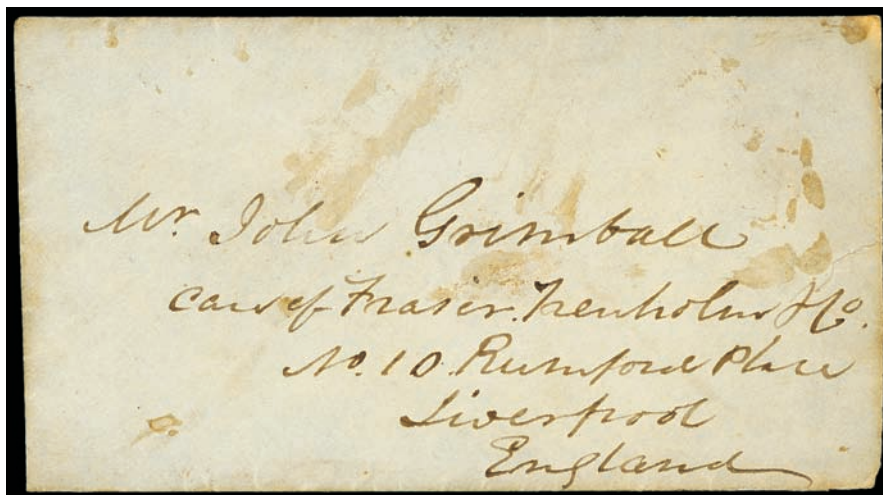 Mr. John Grimball
care of Fraser. Trenholm & Co.
No. 10. Rumford Place
Liverpool
England